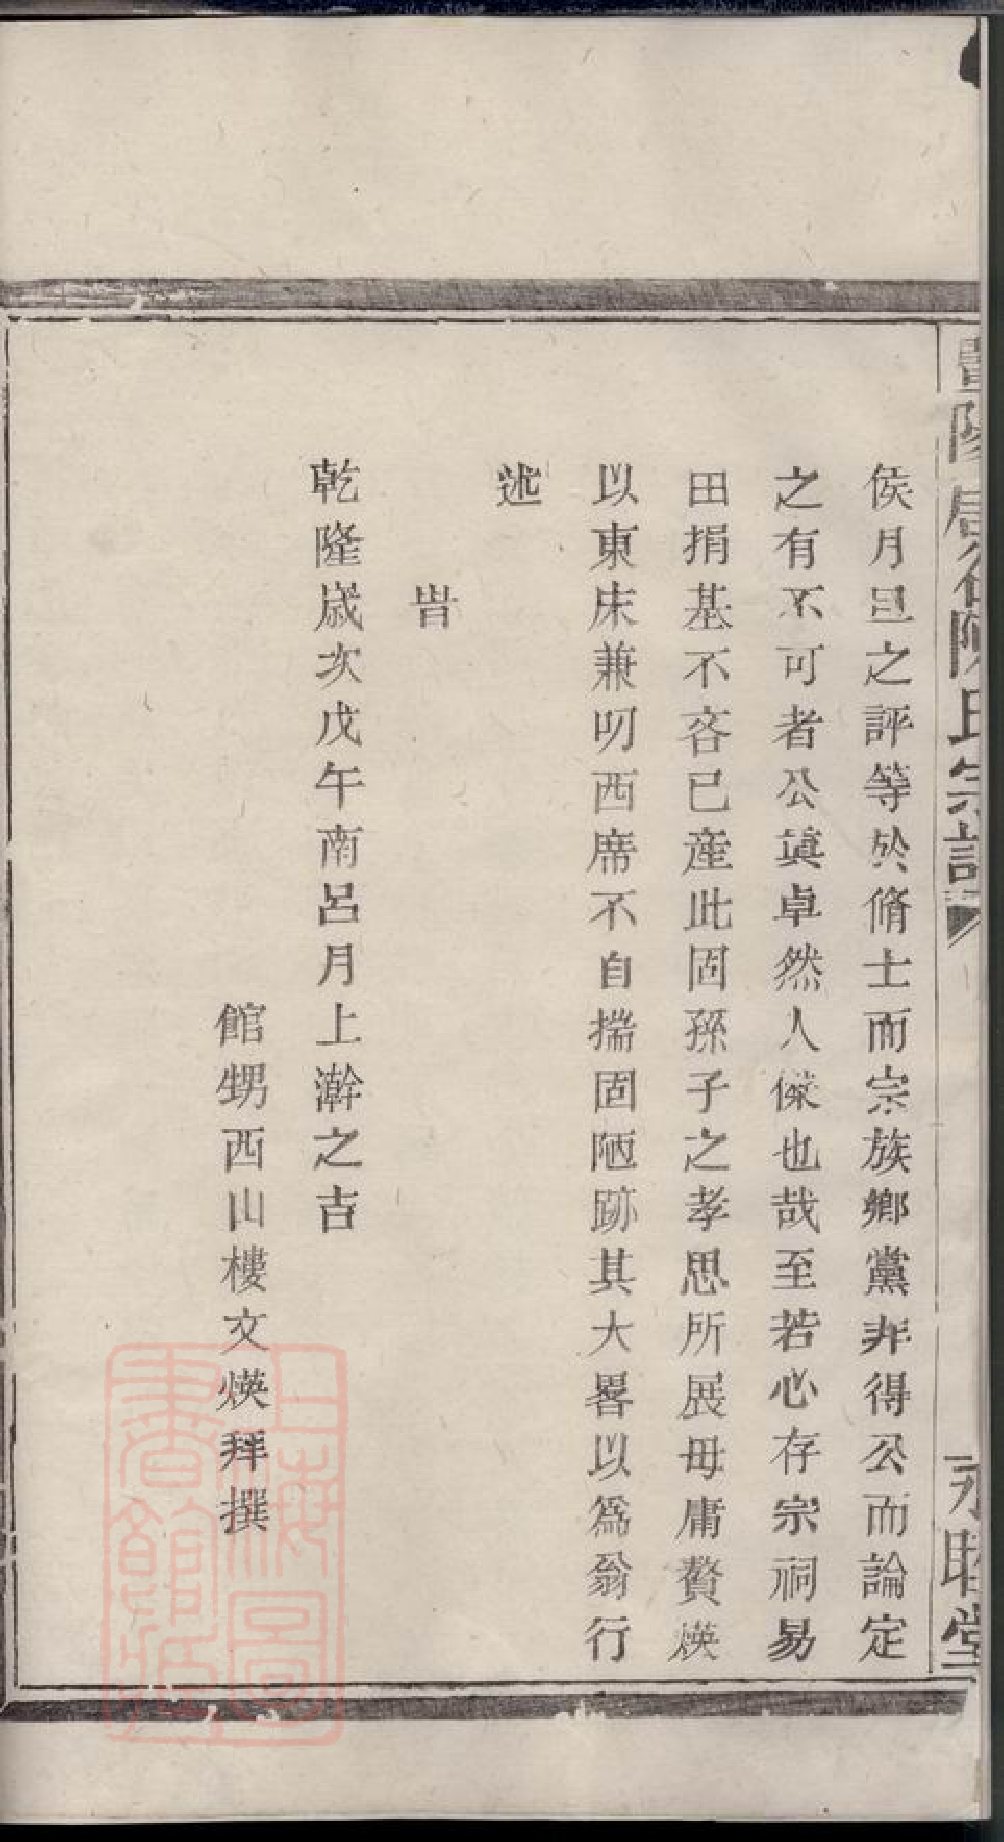 暨陽唐谷陳氏宗譜
永睦堂
俟月旦之評等於脩士而宗族鄉黨非得公而論定
之有不可者公眞卓然人傑也哉至若心存宗祠易
田捐基不吝已產此固孫子之孝思所展毋庸贅煐
以東床兼叨西席不自揣固陋跡其大畧以爲翁行
述
旹
乾隆歲次戊午南呂月上澣之吉
館甥西山樓文煐拜撰
上海圖書館藏